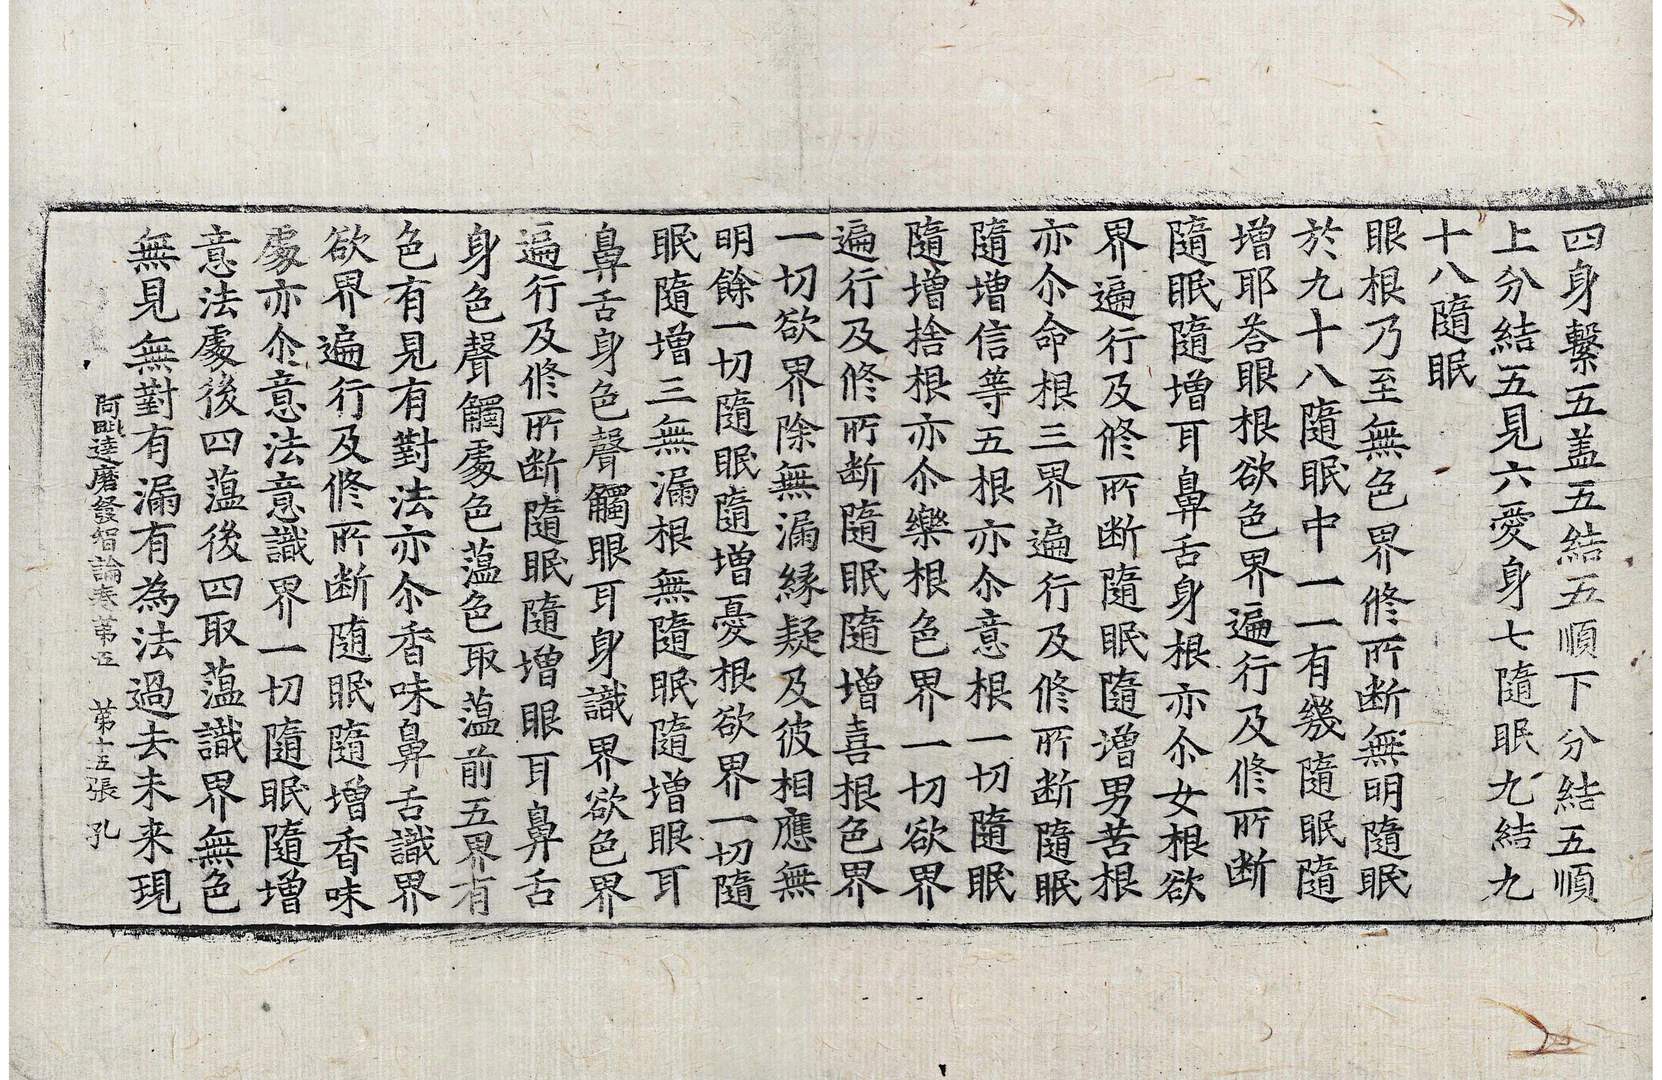 四身繫五盖五結五順下分結五順
上分結五見六愛身七隨眠九結九
十八隨眠
眼根乃至無色界修所断無明隨眠
於九十八隨眠中一一有幾隨眠隨
增耶荅眼根欲色界遍行及修所断
隨眠隨增耳鼻舌身根亦尒女根欲
界遍行及修所断隨眠隨增男苦根
亦尒命根三界遍行及修所断隨眠
隨增信等五根亦尒意根一切隨眠
隨增捨根亦尒樂根色界一切欲界
遍行及修所断隨眠隨增喜根色界
一切欲界除無漏縁疑及彼相應無
明餘一切隨眠隨增憂根欲界一切隨
眠隨增三無漏根無隨眠隨增眼耳
鼻舌身色聲觸眼耳身識界欲色界
遍行及修所断隨眠隨增眼耳鼻舌
身色聲觸處色蕰色取蕰前五界有
色有見有對法亦尒香味鼻舌識界
欲界遍行及修所断隨眠隨增香味
處亦尒意法意識界一切隨眠隨增
意法處後四蕰後四取蕰識界無色
無見無對有漏有為法過去未来現
阿毗達磨發智論卷苐五 苐十五張 孔